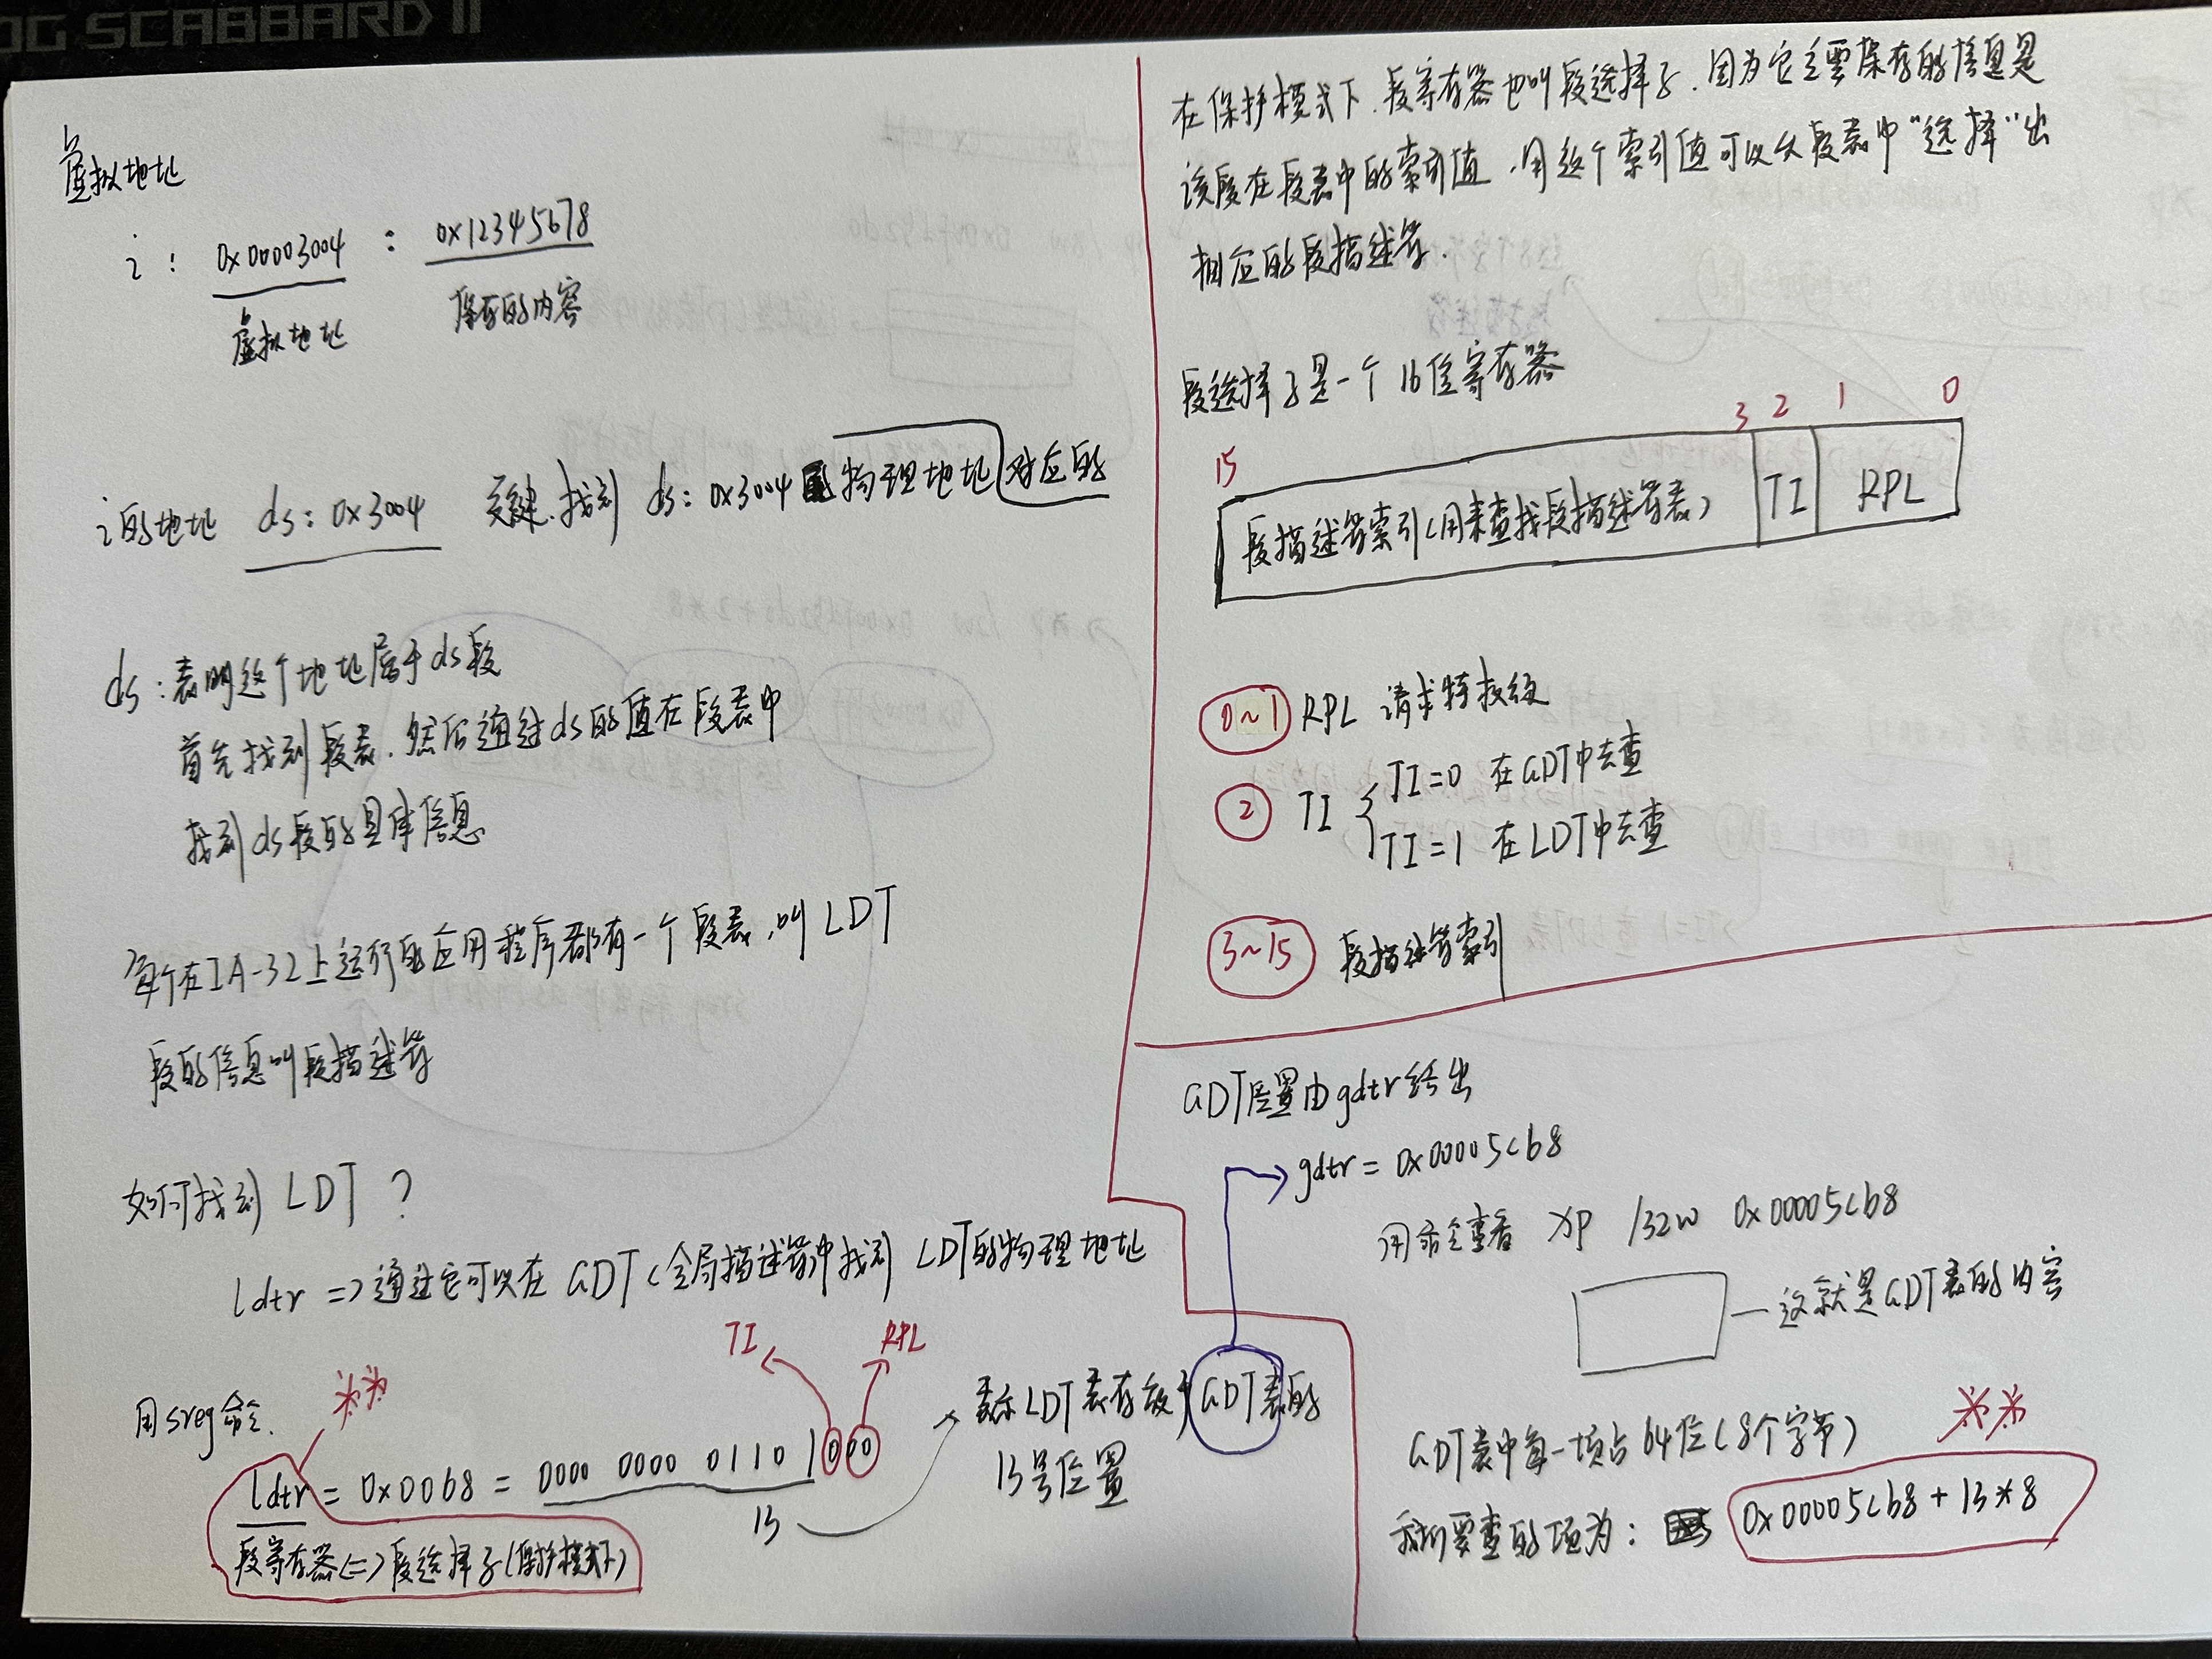 OG SCABBARD II
虚拟地址
i : 0x00003004 : 0x12345678
虚拟地址 保存的内容
i的地址 ds: 0x3004 关键.找到 ds: 0x3004 物理地址 对应的
ds:表明这个地址属于ds段
首先找到段表.然后通过ds的值在段表中
找到ds段的具体信息
每个在IA-32上运行的应用程序都有一个段表,叫LDT
段的信息叫段描述符
如何找到 LDT ?
ldtr => 通过它可以在 GDT(全局描述符)中找到 LDT的物理地址
TI RPL
用sreg命令.
ldtr = 0x0068 = 0000 0000 0110 1000
13
段寄存器(=)段选择子(保护模式下)
表示LDT表存放于GDT表的
13号位置
在保护模式下.段寄存器也叫段选择子.因为它主要保存的信息是
该段在段表中的索引值.用这个索引值可以从段表中"选择"出
相应的段描述符.
段选择子是一个 16位寄存器
15 3 2 1 0
段描述符索引(用来查找段描述符表) TI RPL
0~1 RPL 请求特权级
2 TI TI=0 在GDT中去查
TI=1 在LDT中去查
3~15 段描述符索引
GDT位置由gdtr给出
gdtr = 0x00005cb8
用命令查看 xp /32w 0x00005cb8
这就是GDT表的内容
GDT表中每一项占64位(8个字节)
我们要查的项为: 0x00005cb8 + 13*8